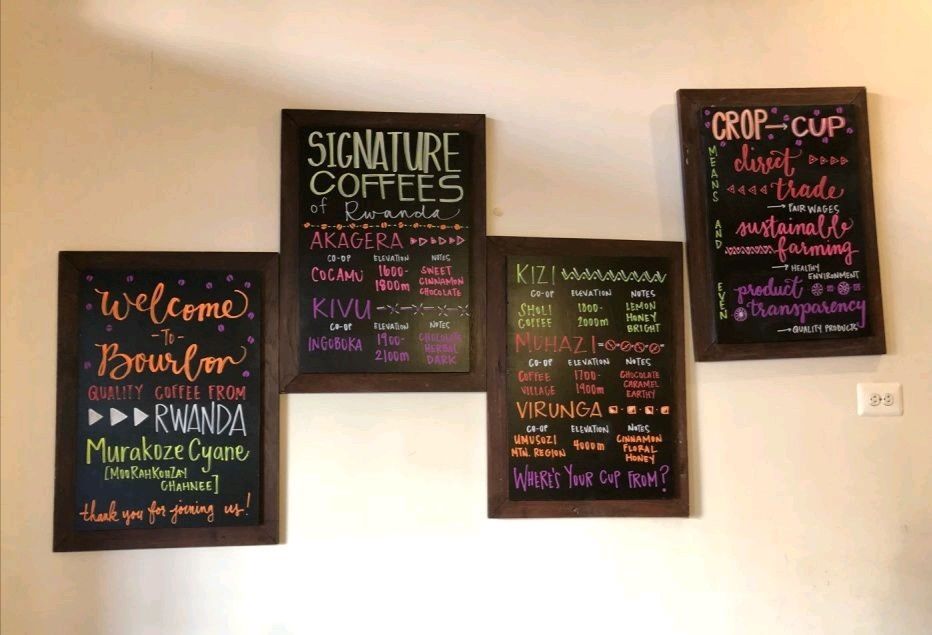 Welcome
-TO-
Bourbon
QUALITY COFFEE FROM
RWANDA
Murakoze Cyane
[MOORAHKOHZAY
CHAHNEE]
thank you for joining us!
SIGNATURE
COFFEES
of Rwanda
AKAGERA
CO-OP ELEVATION NOTES
COCAMU 1600-1800m SWEET CINNAMON CHOCOLATE
KIVU
CO-OP ELEVATION NOTES
INGOBOKA 1900-2100m CHOCOLATE HERBAL DARK
KIZI
CO-OP ELEVATION NOTES
SHOLI COFFEE 1800-2000m LEMON HONEY BRIGHT
MUHAZI
CO-OP ELEVATION NOTES
COFFEE VILLAGE 1700-1900m CHOCOLATE CARAMEL EARTHY
VIRUNGA
CO-OP ELEVATION NOTES
UMUSOZI MTN. REGION 4000m CINNAMON FLORAL HONEY
WHERE'S YOUR CUP FROM?
CROP→CUP
MEANS
direct
trade
→FAIR WAGES
AND
sustainable
farming
→HEALTHY
ENVIRONMENT
EVEN
product
transparency
→QUALITY PRODUCTS